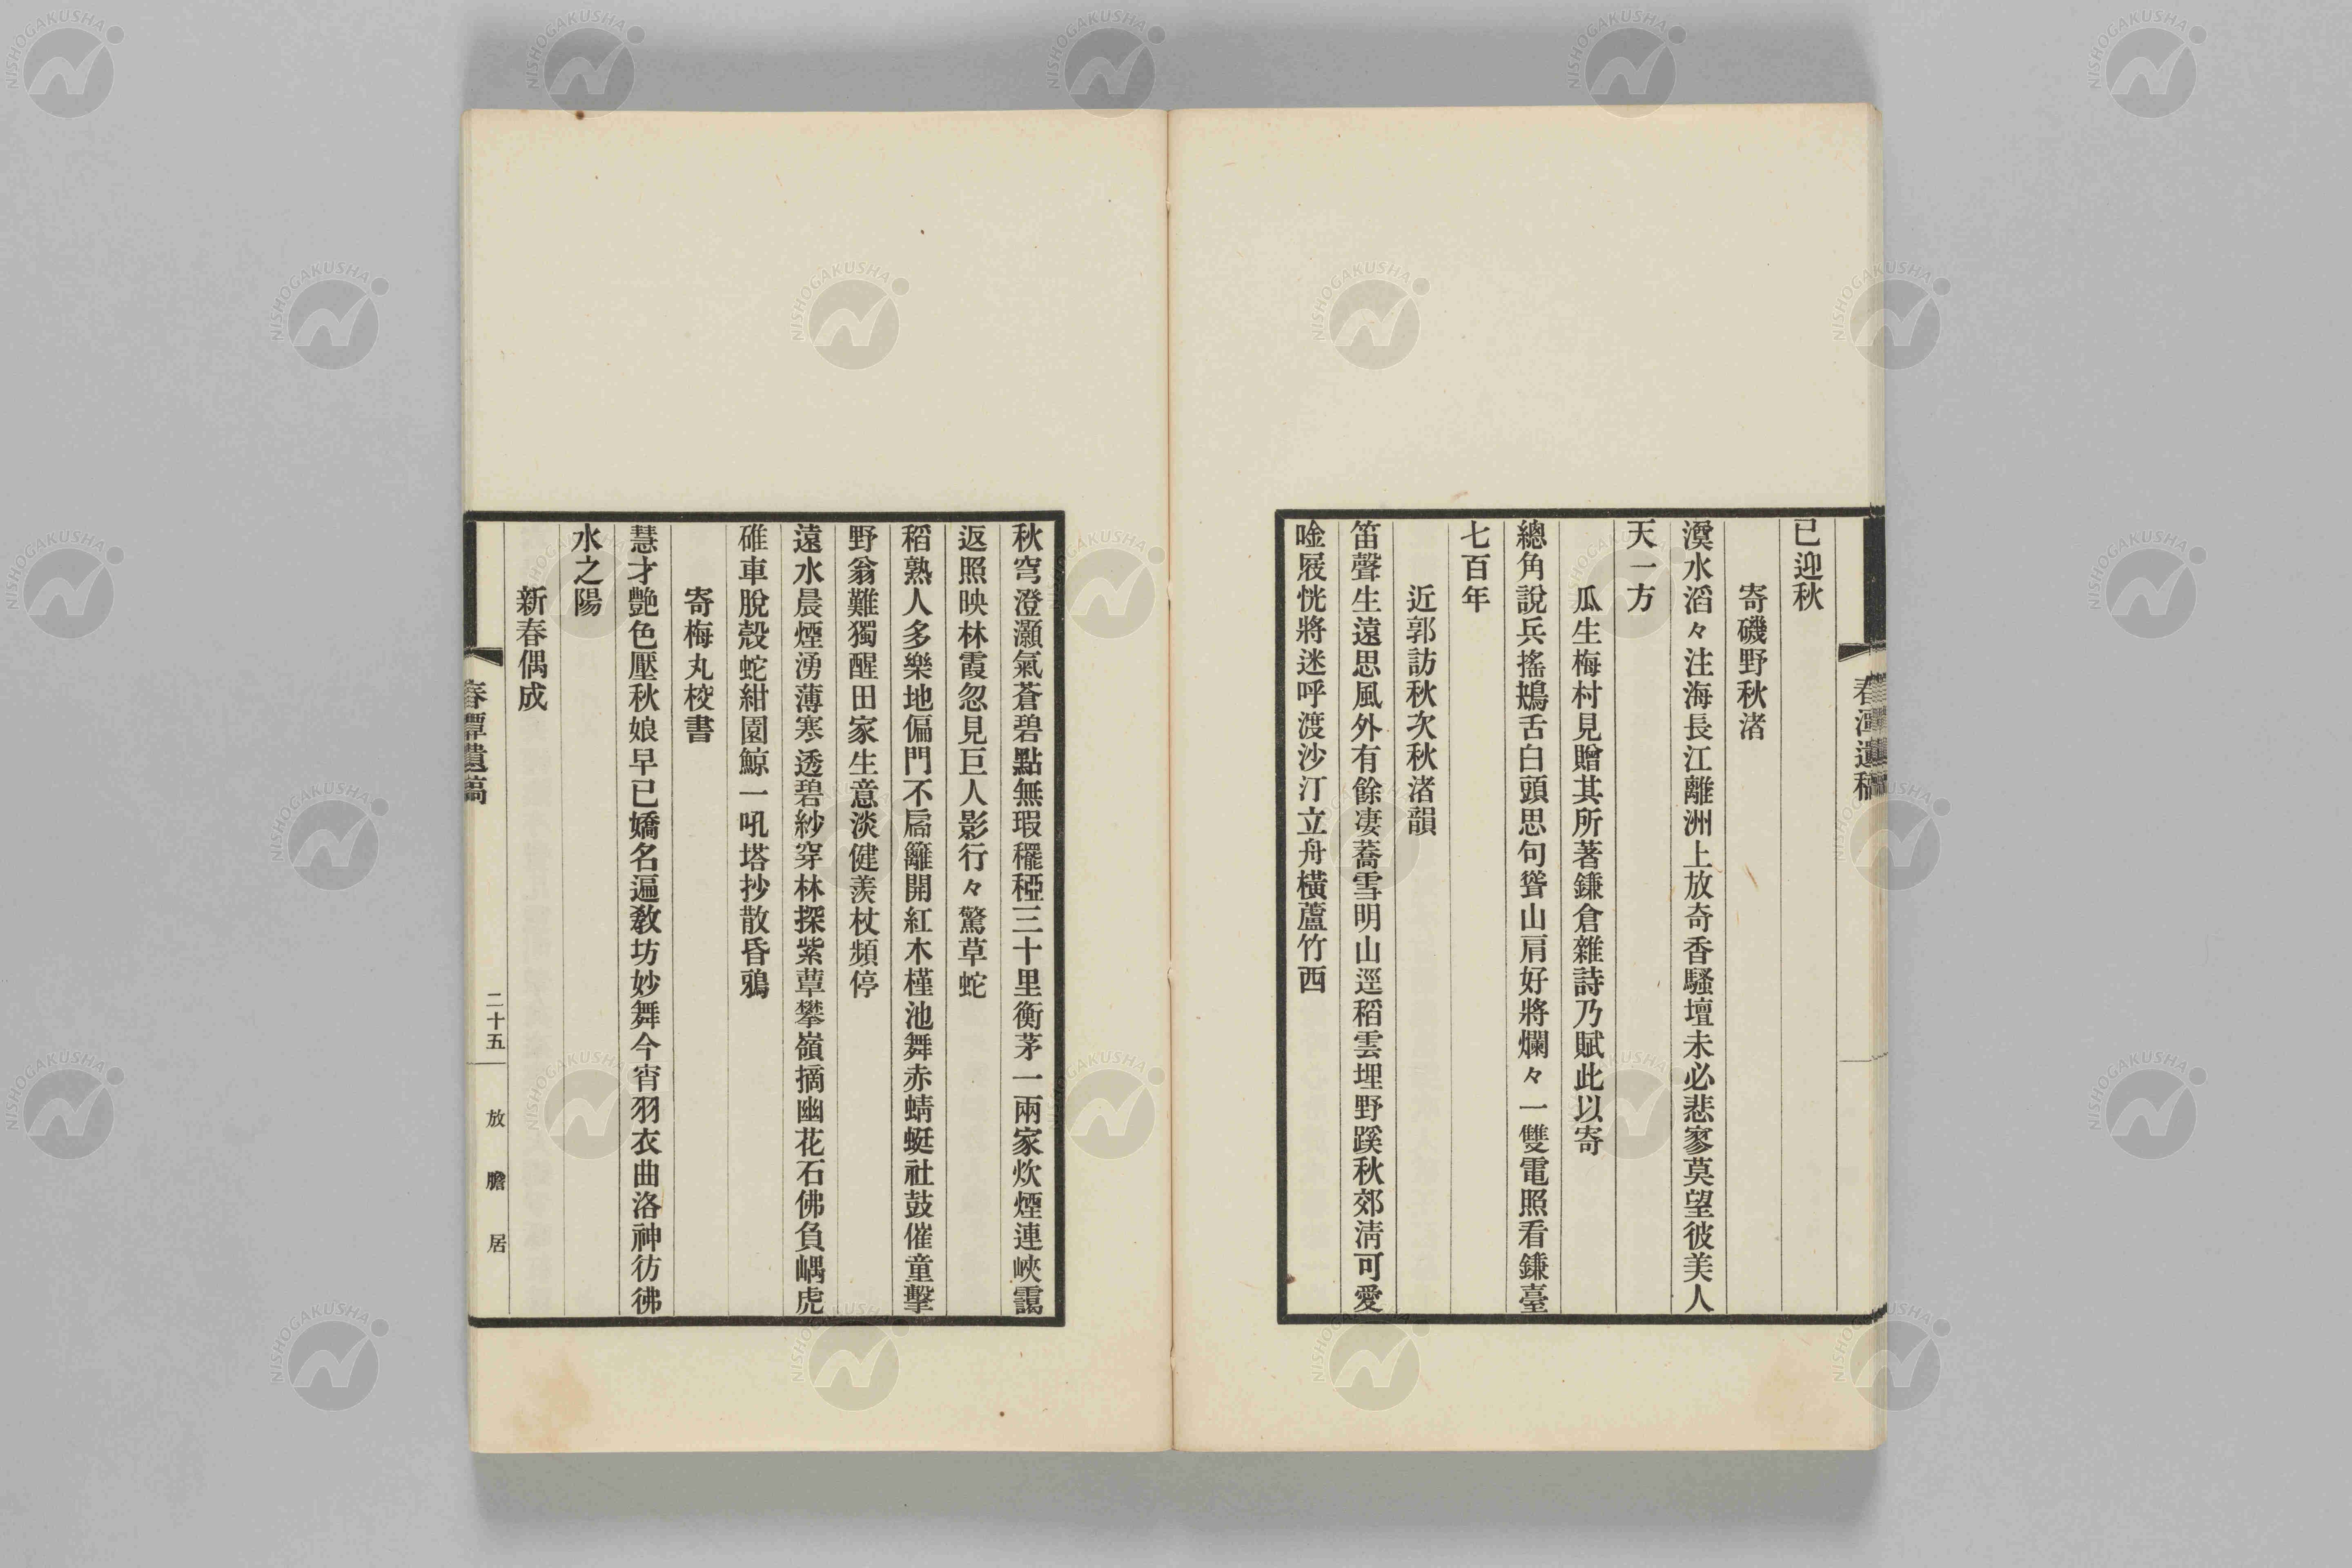 春潭遺稿
已迎秋
寄磯野秋渚
澳水滔々注海長江離洲上放奇香騷壇未必悲寥莫望彼美人
天一方
瓜生梅村見贈其所著鎌倉雜詩乃賦此以寄
總角說兵搖鴂舌白頭思句聳山肩好將爛々一雙電照看鎌臺
七百年
近郭訪秋次秋渚韻
笛聲生遠思風外有餘凄蕎雪明山逕稻雲埋野蹊秋郊淸可愛
唫屐恍將迷呼渡沙汀立舟橫蘆竹西
秋穹澄灝氣蒼碧點無瑕䆉稏三十里衡茅一兩家炊煙連峽靄
返照映林霞忽見巨人影行々驚草蛇
稻熟人多樂地偏門不扃籬開紅木槿池舞赤蜻蜓社鼓催童擊
野翁難獨醒田家生意淡健羨杖頻停
遠水晨煙湧薄寒透碧紗穿林探紫蕈攀嶺摘幽花石佛負嵎虎
碓車脫殼蛇紺園鯨一吼塔抄散昏鴉
寄梅丸校書
慧才艶色壓秋娘早已嬌名遍敎坊妙舞今宵羽衣曲洛神彷彿
水之陽
新春偶成
春潭遺稿
二十五
放膽居
NISHOGAKUSHA